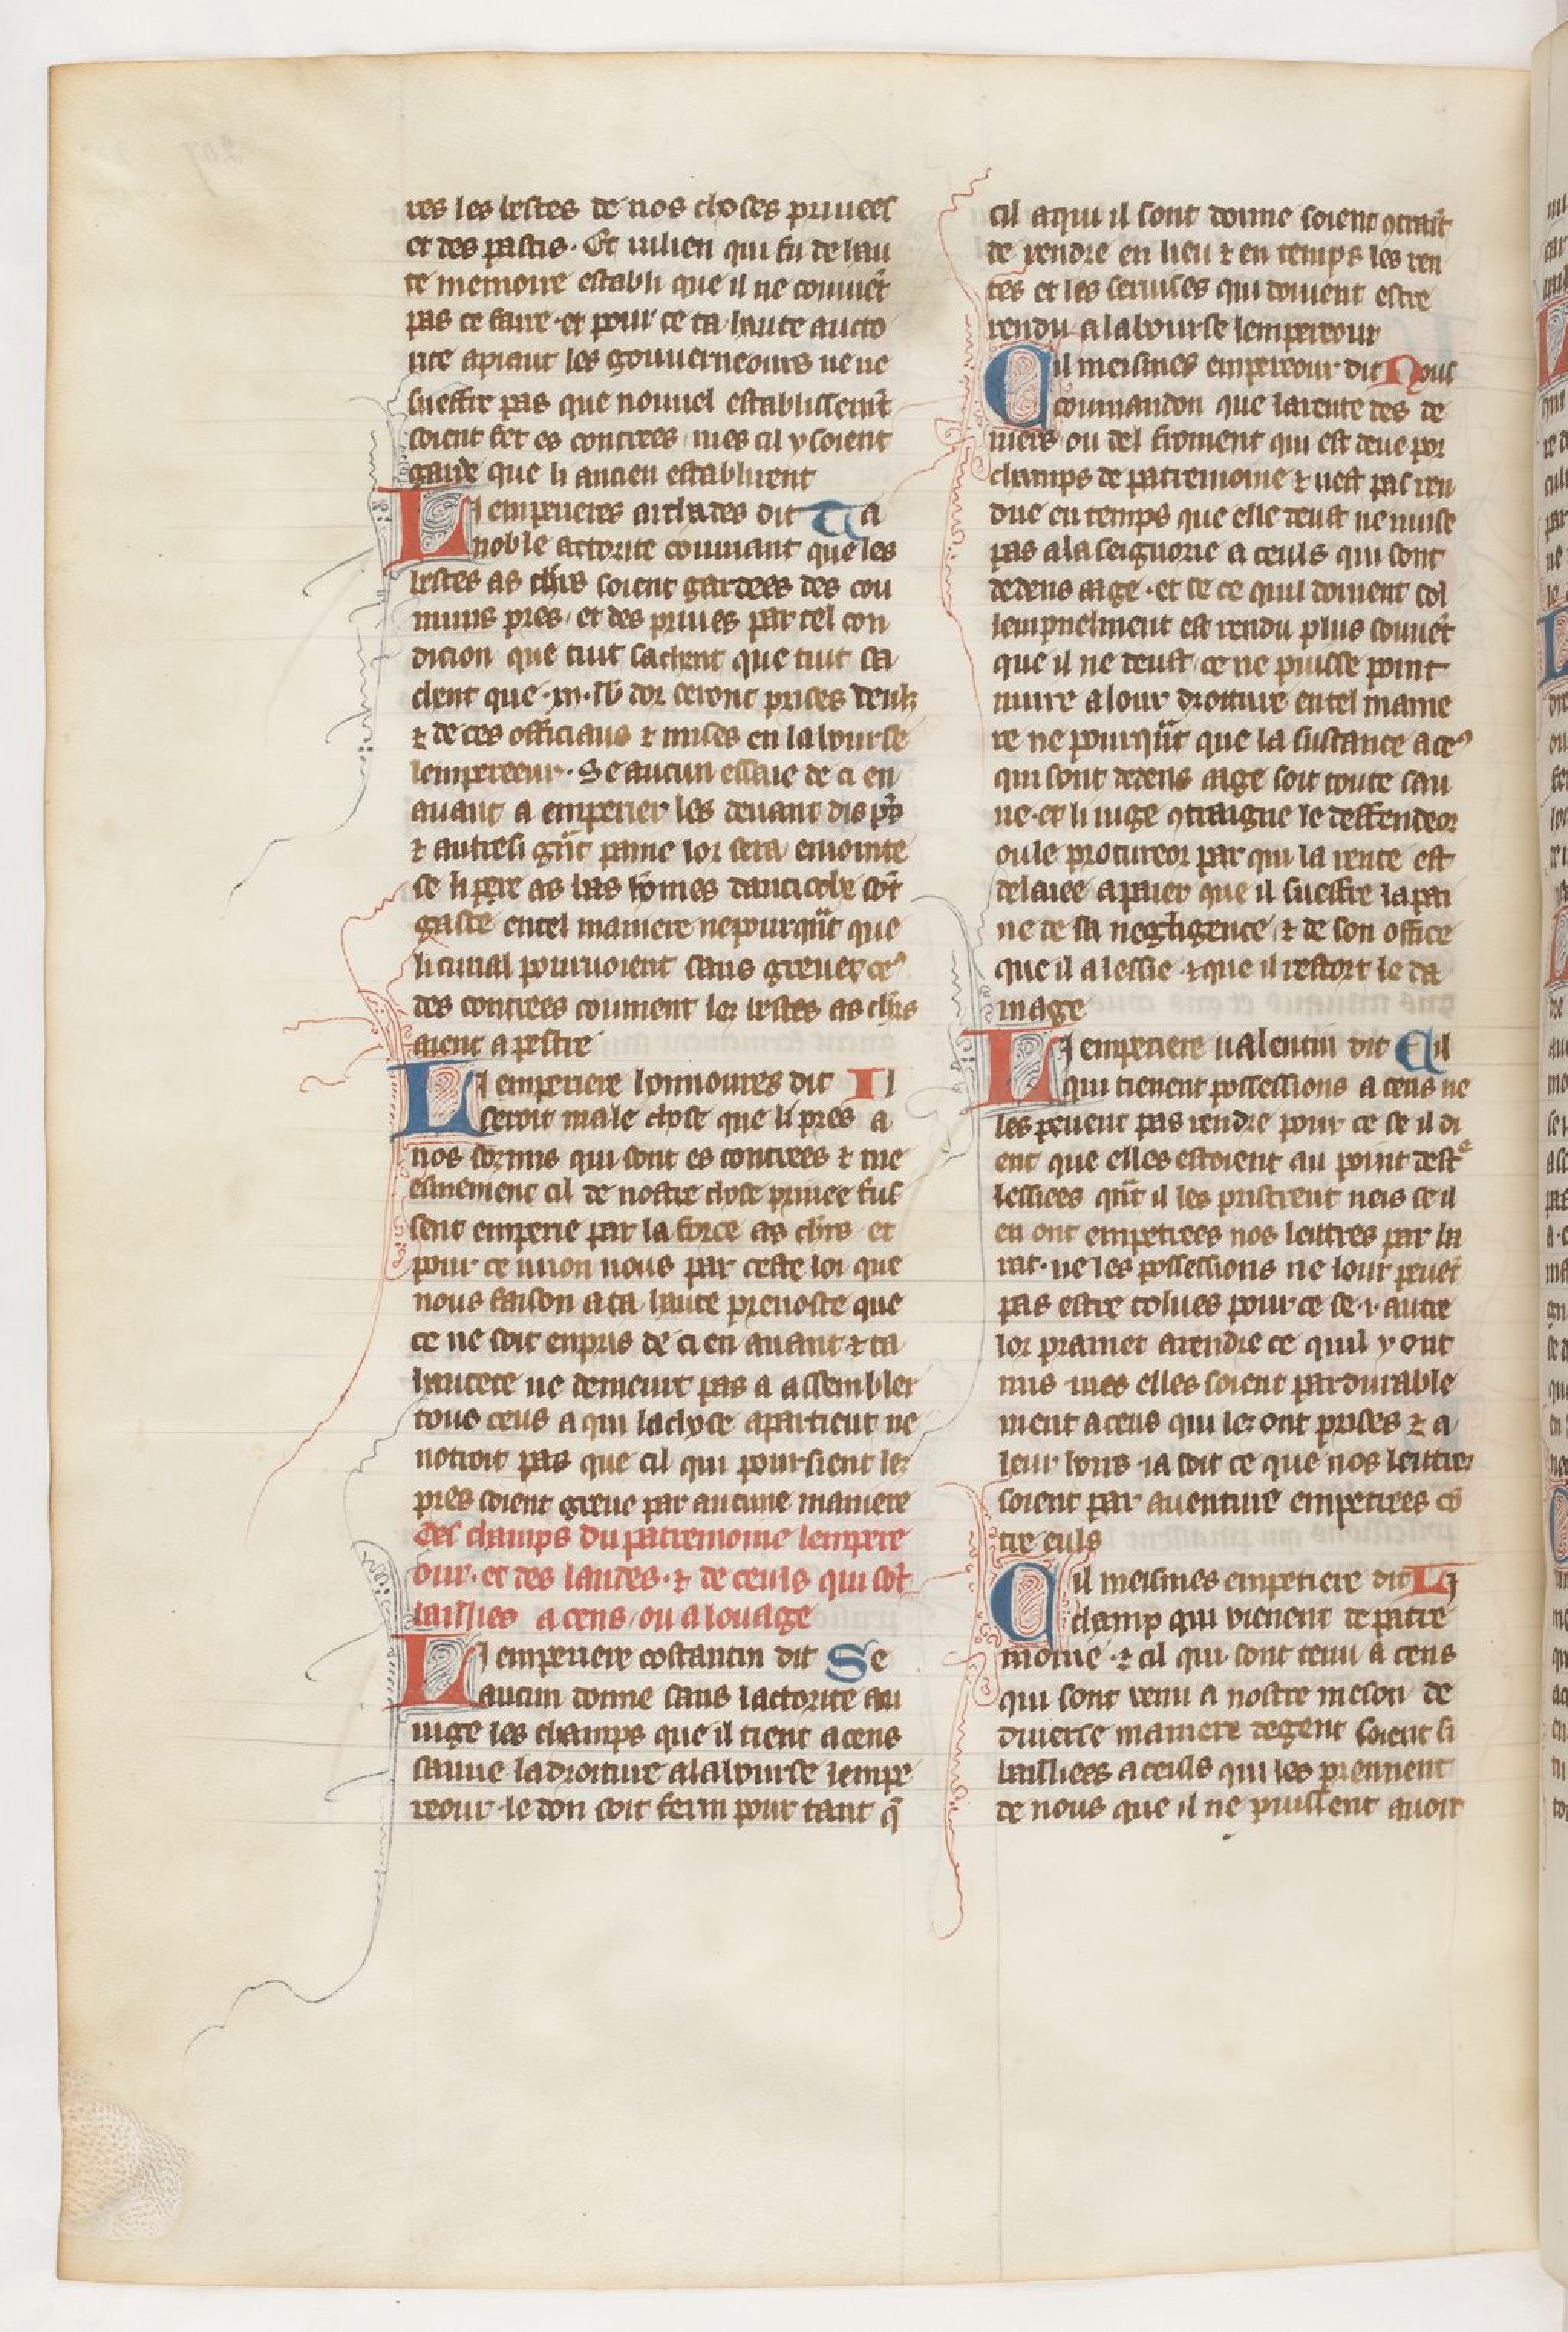 res les bestes de nos choses priuees
et des pastis. Et iulien qui fu de hau
te memoire establi que il ne couuiẽt
pas ce faire et pour ce ta haute aucto
rite apiaut les gouuerneours ne ne
sueffre pas que nouuel establissemẽt
soient fet es contrees mes cil y soient
garde que li ancien establirent
Li emperieres archades dit Ta
noble actorite coumant que les
bestes as chrs soient gardees des cou
muns pres et des priues par tel con
dicion que tuit sachent que tuit sa
chent que .m. lb dor seront prises deulz
⁊ de ces officiaus ⁊ mises en la bourse
lempereeur. Se aucun essaie de ci en
auant a empirier les deuant dis p̃s
⁊ autresi gñt paine lor sera eniointe
se li pere as bas hõmes danticolx sõt
gaste en tel maniere nepourqñt que
li curial pouruoient sans greuer ceꝰ
des contrees coument lez bestes as chrs
aient a pestre
Li emperiere honnoures dit Il
seroit male chose que li pres a
nos sozmis qui sont es contrees ⁊ me
esmement cil de nostre chose priuee fus
sent emperie par la force as chrs et
pour ce iuion nous par ceste loi que
nous faison a ta haute preuoste que
ce ne soit enpris de ci en auant ⁊ ta
hautece ne demeurt pas a assembler
tous ceus a qui la chose apartient ne
notroit pas que cil qui poursient lez
pres soient greue par aucune maniere
Des champs du patremoine lempere
our. et des landes. ⁊ de ceuls qui sõt
baillies a cens ou a louage
Li emperiere costantin dit Se
aucun donne sans lactorite au
iuge les champs que il tient a cens
sauue la droiture a la bourse lempe
reour le don soit ferm pour tant q̃
cil a qui il sont donne soient ꝯtraĩt
de rendre en lieu ⁊ en temps les ren
tes et les seruises qui doiuent estre
rendu a la bourse lempereour
Cil meismes empereour dit Nous
coumandon que la rente des de
niers ou del froment qui est deue por
champs de patremoine ⁊ nest pas ren
due en temps que elle deust ne nuise
pas a la seignorie a ceuls qui sont
dedens aage. et se ce quil doiuent sol
lempnelment est rendu plus souuẽt
que il ne deust ce ne puisse point
nuire a lour droiture en tel manie
re ne pourqũt que la sustance a ceꝰ
qui sont dedens aage soit toute sau
ue. et li iuge ꝯtraigne le deffendeor
ou le procureor par qui la rente est
delaiee a paier que il sueffre la pai
ne de sa negligence ⁊ de son office
que il a lessie ⁊ que il restort le da
mage
Li emperiere ualentin dit Cil
qui tienent possessions a cens ne
les peuent pas rendre pour ce se il di
ent que elles estoient au point destᵉ
lessiees qñt il les pristrent neis se il
en ont empetrees nos lettres par ba
rat. ne les possessions ne lour peuẽt
pas estre tolues pour ce se .i. autre
lor pramet a rendre ce quil y ont
mis mes elles soient pardurable
ment a ceus qui lez ont prises ⁊ a
leur hoirs ia soit ce que nos lettrez
soient par auenture empetrees cõ
tre euls
Cil meismes emperiere dit Li
champ qui vienent de patre
moine ⁊ cil qui sont tenu a cens
qui sont venu a nostre meson de
diuerse maniere de gent soient si
bailliees a ceuls qui les prennent
de nous que il ne puissent auoir